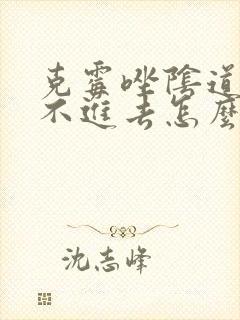 克霉唑陰道
不進去怎麼
沈志峰